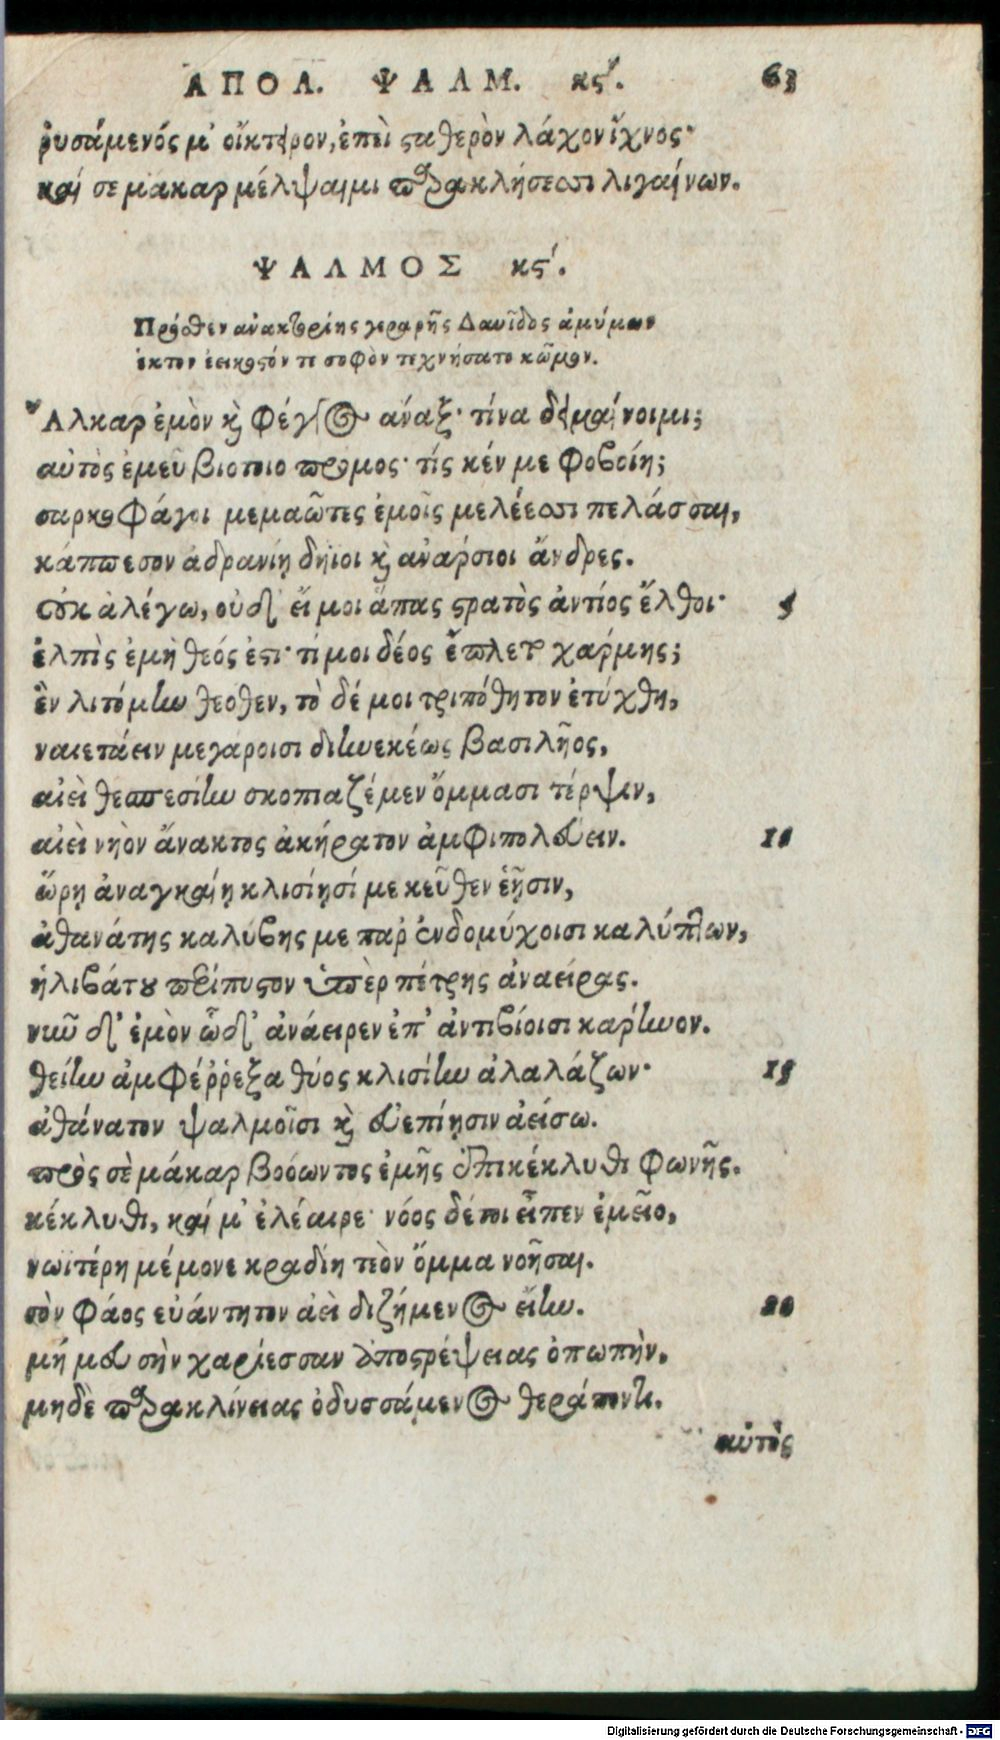 ΑΠΟΛ. ΨΑΛΜ. κϛʹ. 63
ῥυσάμενός μ' οἴκτειρον, ἐπεὶ σταθερὸν λάχον ἴχνος·
καί σε μάκαρ μέλψαιμι παρακλήσεσσι λιγαίνων.
ΨΑΛΜΟΣ κϛʹ.
Πρόσθεν ἀνακτορίης γεραρῆς Δαυῖδος ἀμύμων
ἕκτον ἐεικοστόν τε σοφὸν τεχνήσατο κῶμον.
Ἄλκαρ ἐμὸν καὶ φέγγος ἄναξ· τίνα δειμαίνοιμι;
αὐτὸς ἐμεῦ βιότοιο πρόμος· τίς κέν με φοβοίη;
σαρκοφάγοι μεμαῶτες ἐμοῖς μελέεσσι πελάσσαι,
κάππεσον ἀδρανίῃ δήϊοι καὶ ἀνάρσιοι ἄνδρες.
οὐκ ἀλέγω, οὐδ' εἴ μοι ἅπας στρατὸς ἀντίος ἔλθοι· 5
ἐλπὶς ἐμὴ θεός ἐστι· τί μοι δέος ἔπλετο χάρμης;
ἓν λιτόμην θεόθεν, τὸ δέ μοι τριπόθητον ἐτύχθη,
ναιετάειν μεγάροισι διηνεκέως βασιλῆος,
αἰεὶ θεσπεσίην σκοπιαζέμεν ὄμμασι τέρψιν,
αἰεὶ νηὸν ἄνακτος ἀκήρατον ἀμφιπολεύειν. 10
ὥρῃ ἀναγκαίῃ κλισίῃσί με κεῦθεν ἑῇσιν,
ἀθανάτης καλύβης με παρ' ἐνδομύχοισι καλύπτων,
ἠλιβάτου τρίπυστον ὑπὲρ πέτρης ἀναείρας.
νῦν δ' ἐμὸν ὧδ' ἀνάειρεν ἐπ' ἀντιβίοισι κάρηνον.
θείην ἀμφέῤῥεξα θύος κλισίην ἀλαλάζων· 15
ἀθάνατον ψαλμοῖσι καὶ εὐεπίῃσιν ἀείσω.
πρὸς σὲ μάκαρ βοόωντος ἐμῆς ἐπικέκλυθι φωνῆς.
κέκλυθι, καί μ' ἐλέαιρε· νόος δέ τοι εἶπεν ἐμεῖο,
νωϊτέρη μέμονε κραδίη τεὸν ὄμμα νοῆσαι.
σὸν φάος εὐάντητον ἀεὶ διζήμενος εἴην. 20
μή μευ σὴν χαρίεσσαν ἀποστρέψειας ὀπωπὴν,
μηδὲ παρακλίνειας ὀδυσσάμενος θεράποντι.
αὐτὸς
Digitalisierung gefördert durch die Deutsche Forschungsgemeinschaft - DFG